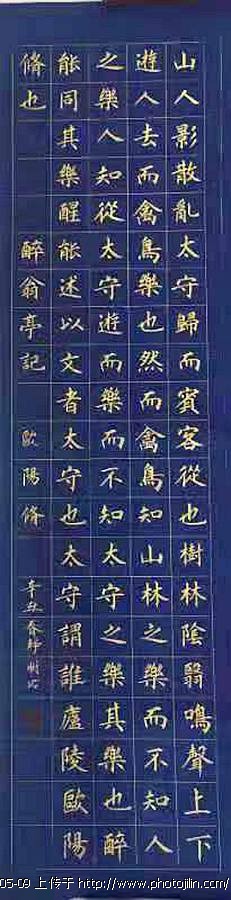 山人影散亂太守歸而賓客從也樹林陰翳鳴聲上下
遊人去而禽鳥樂也然而禽鳥知山林之樂而不知人
之樂人知從太守遊而樂而不知太守之樂其樂也醉
能同其樂醒能述以文者太守也太守謂誰廬陵歐陽
脩也 醉翁亭記 歐陽脩
辛丑春
05-09 上传于 http://www.photojilin.com/